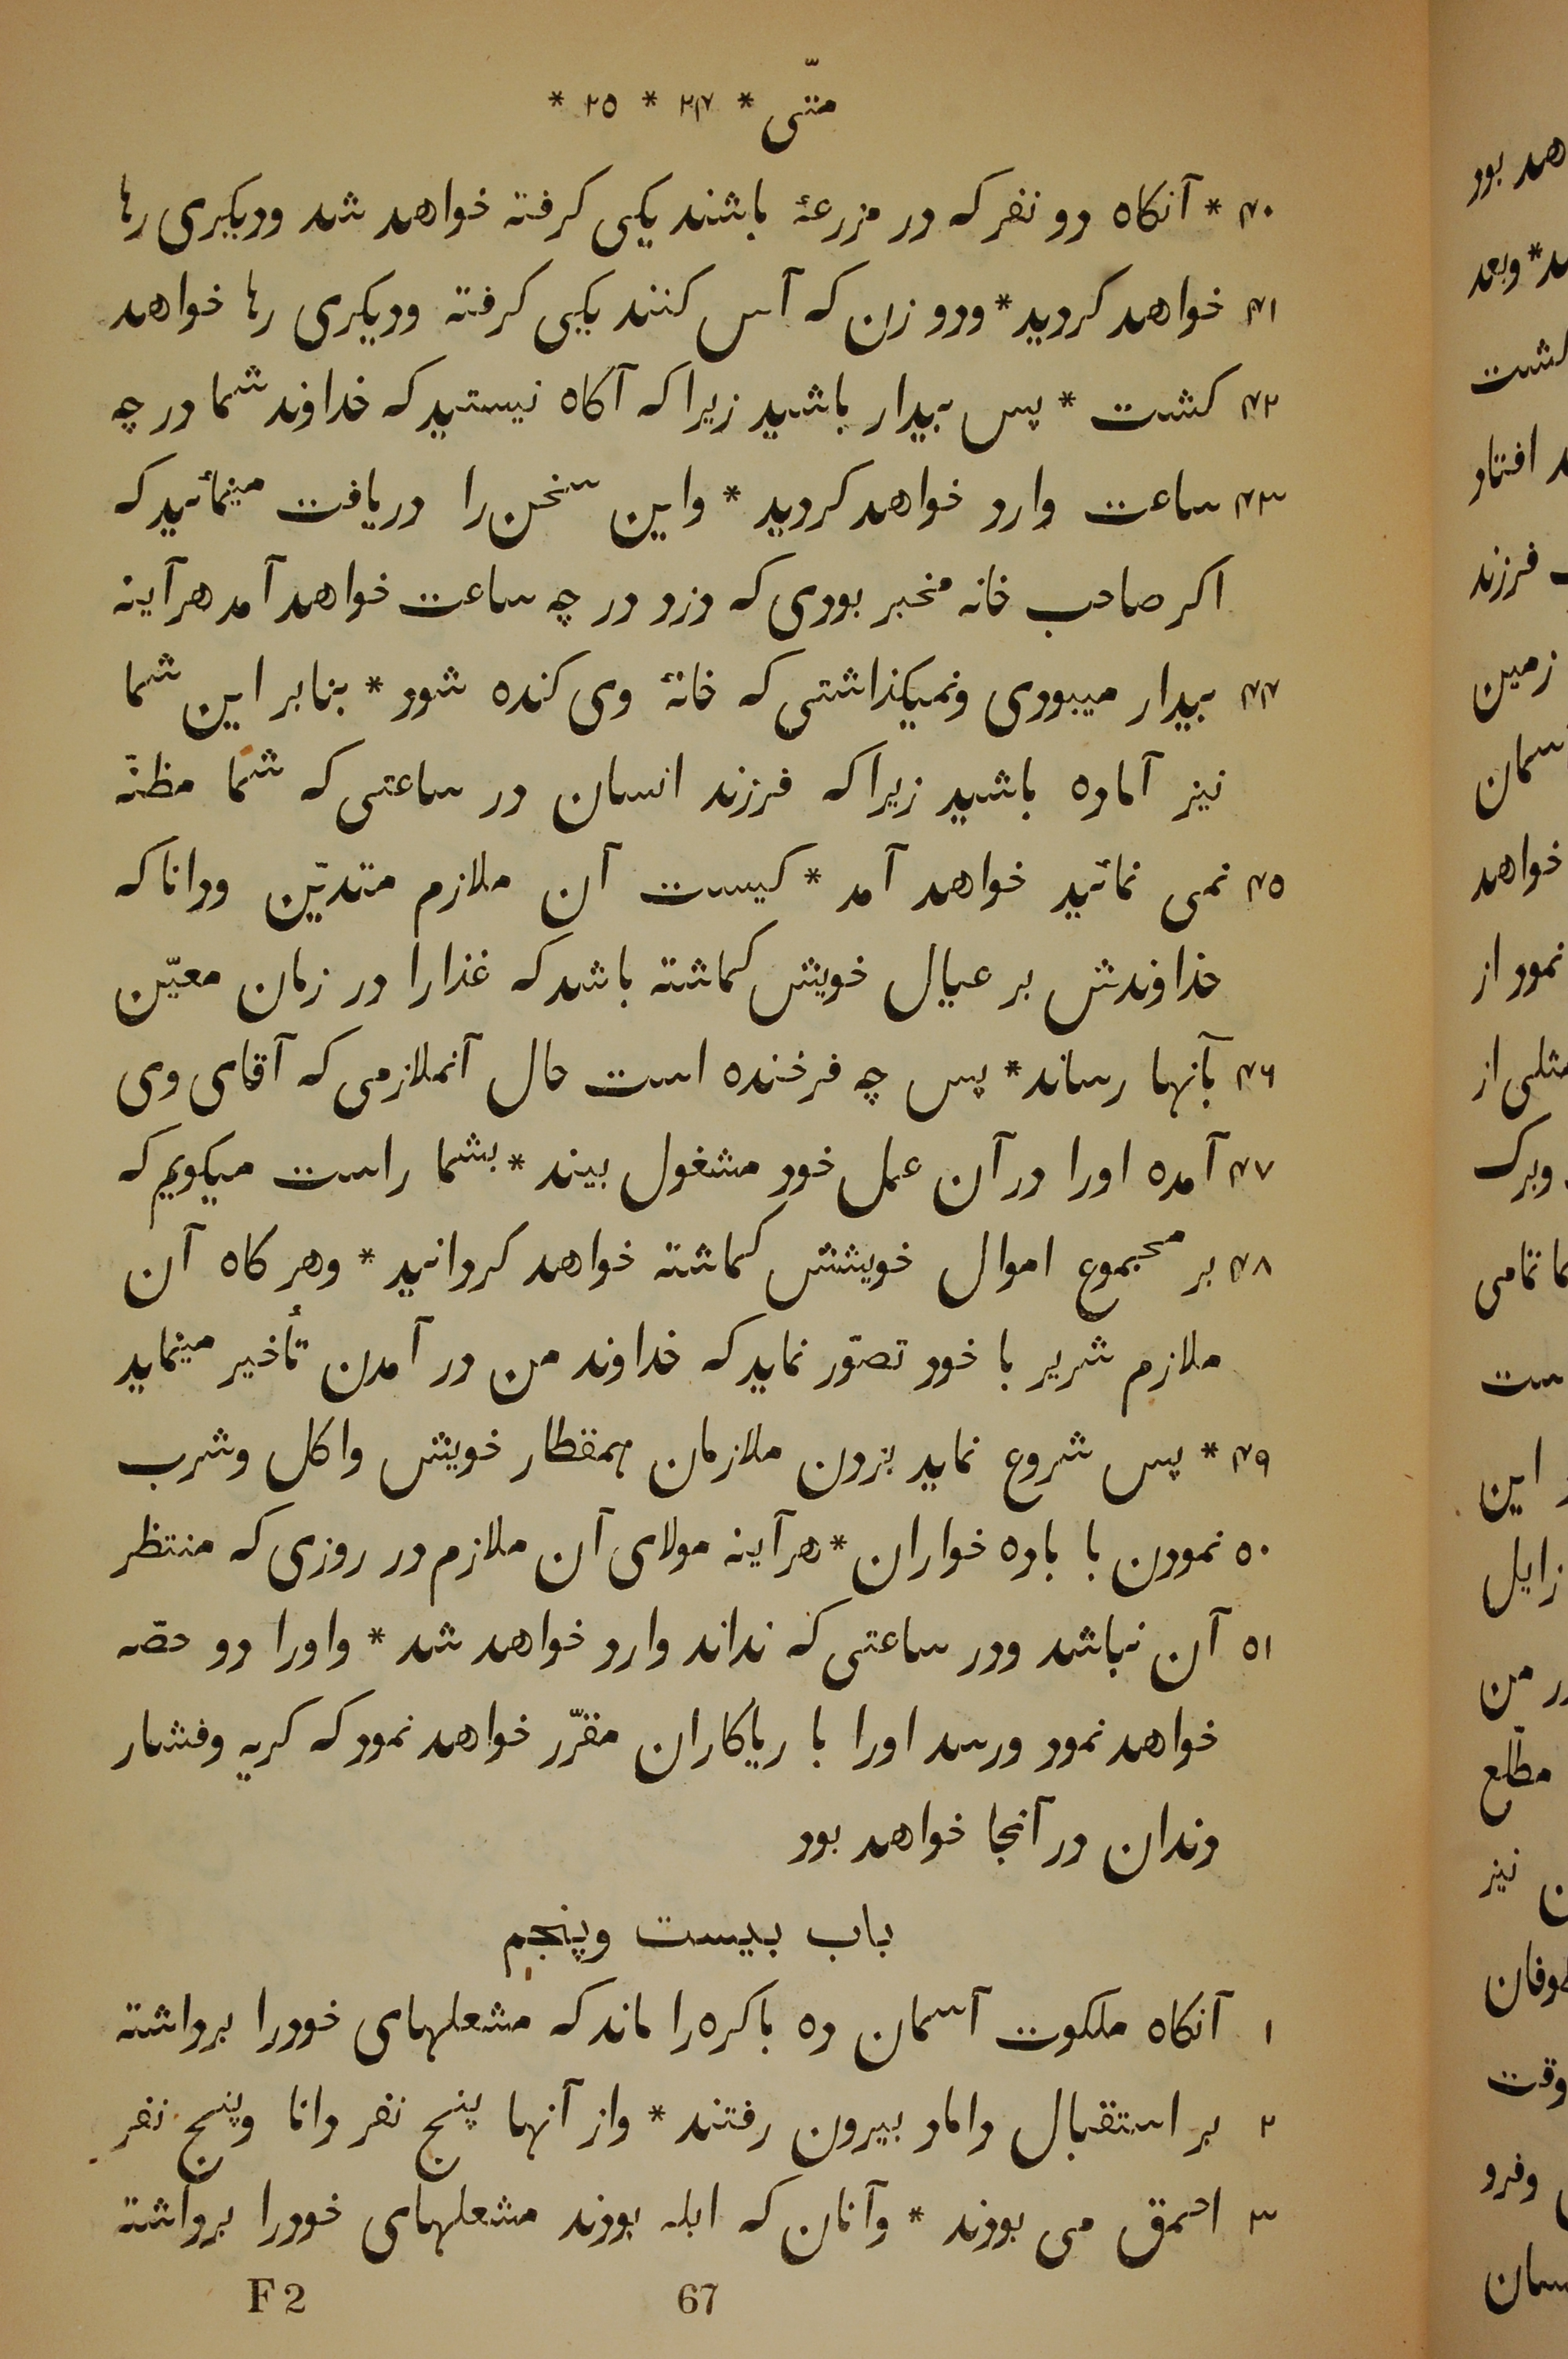 متّی * ۲۴ * ۲۵ *
۴۰ * آنکاه دو نفر که در مزرعهٔ باشند یکی کرفته خواهد شد ودیکری رها
۴۱ خواهد کردید * ودو زن که آس کنند یکی کرفته ودیکری رها خواهد
۴۲ کشت * پس بیدار باشید زیرا که آکاه نیستید که خداوند شما در چه
۴۳ ساعت وارد خواهد کردید * واین سخن را دریافت مینمائید که
اکر صاحب خانه مخبر بودی که دزد در چه ساعت خواهد آمد هرآینه
۴۴ بیدار میبودی ونمیکذاشتی که خانهٔ وی کنده شود * بنابر این شما
نیز آماده باشید زیرا که فرزند انسان در ساعتی که شما مظنّه
۴۵ نمی نمائید خواهد آمد * کیست آن ملازم متدیّن ودانا که
خداوندش بر عیال خویش کماشته باشد که غذارا در زمان معیّن
۴۶ بآنها رساند * پس چه فرخنده است حال آنملازمی که آقای وی
۴۷ آمده اورا در آن عمل خود مشغول بیند * بشما راست میکویم که
۴۸ بر مجموع اموال خویشش کماشته خواهد کردانید * وهر کاه آن
ملازم شریر با خود تصوّر نماید که خداوند من در آمدن تأخیر مینماید
۴۹ * پس شروع نماید بزدن ملازمان همقطار خویش واکل وشرب
۵۰ نمودن با باده خواران * هرآینه مولای آن ملازم در روزی که منتظر
۵۱ آن نباشد ودر ساعتی که نداند وارد خواهد شد * واورا دو حصّه
خواهد نمود ورسد اورا با ریاکاران مقرّر خواهد نمود که کریه وفشار
دندان در آنجا خواهد بود
باب بیست وپنجم
۱ آنکاه ملکوت آسمان ده باکره را ماند که مشعلهای خودرا برداشته
۲ بر استقبال داماد بیرون رفتند * واز آنها پنج نفر دانا وپنج نفر
۳ احمق می بودند * وآنان که ابله بودند مشعلهای خودرا برداشته
F 2 67
هد بود
ند * وبعد
کشت
ند افتاد
فرزند
زمین
سمان
خواهد
نمود از
مثلی از
وبرک
ما تمامی
ست
این
زایل
در من
مطّلع
ن نیز
طوفان
وقت
وفرو
نسان